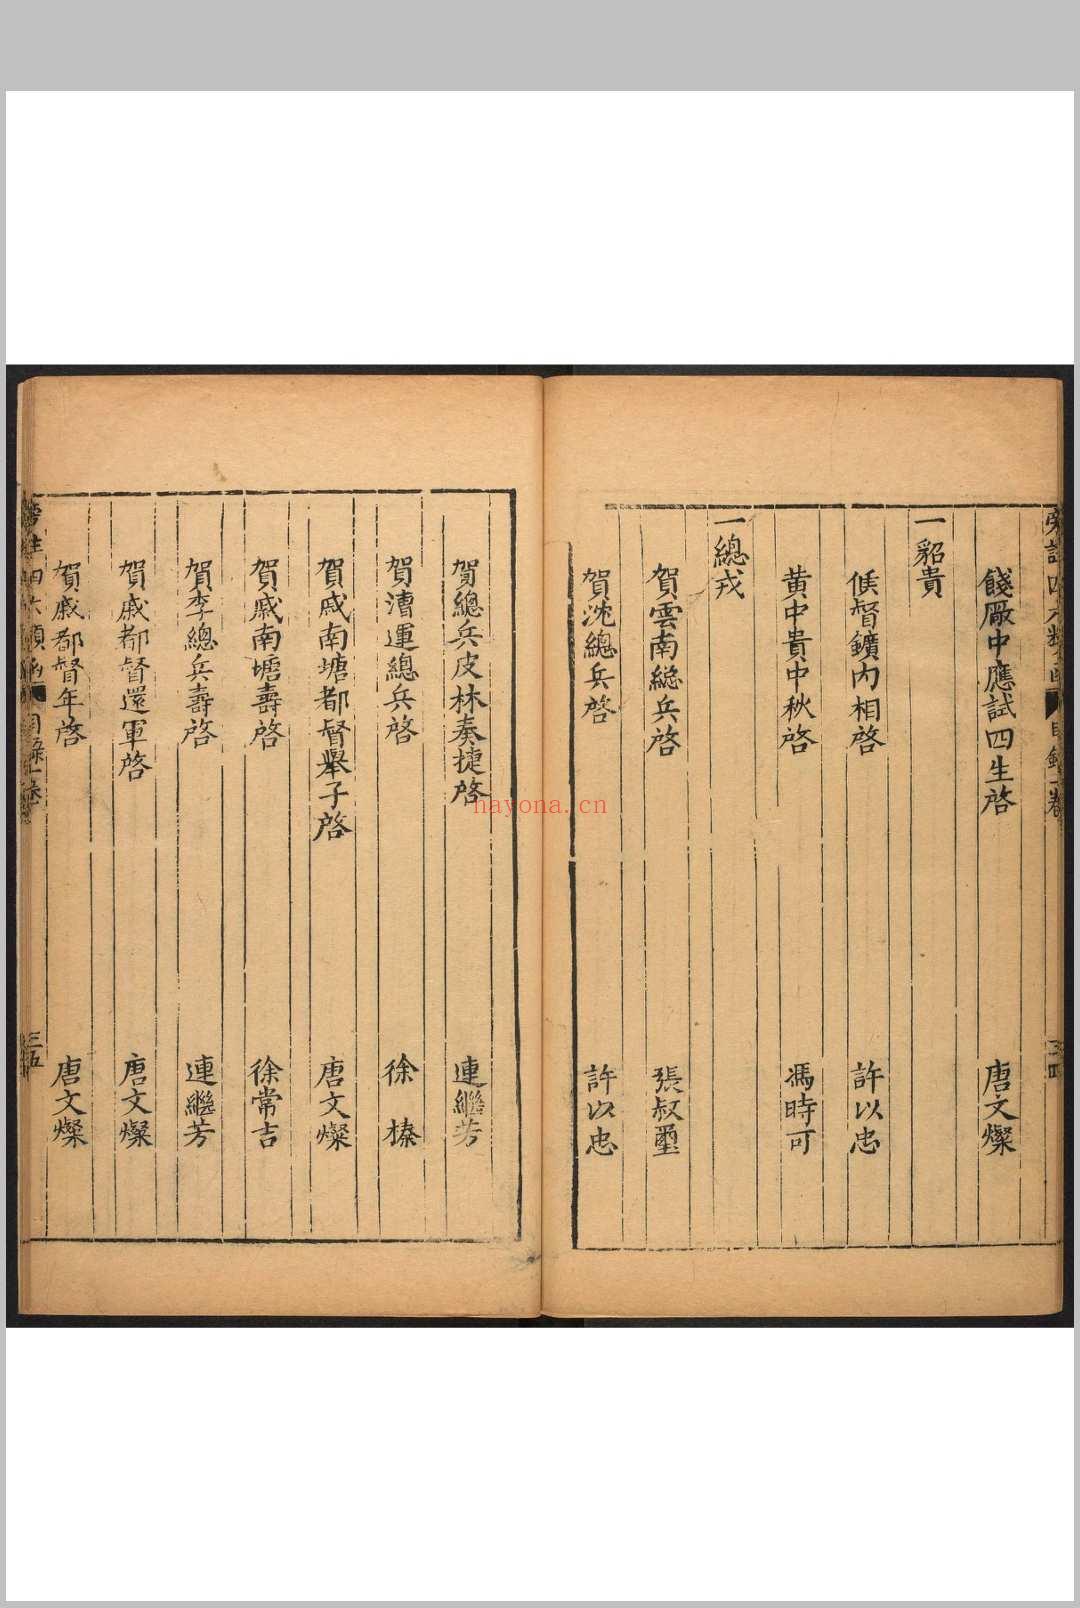 餞厰中應試四生啓　唐文燦
一貂貴
候督鑛内相啓　許以忠
黄中貴中秋啓　馮時可
一總戎
賀雲南総兵啓　張叔璽
賀沈總兵啓　許以忠
賀總兵皮林奏捷啓　連繼芳
賀漕運總兵啓　徐榛
賀戚南塘都督舉子啓　唐文燦
賀戚南塘壽啓　徐常吉
賀李總兵壽啓　連繼芳
賀戚都督還軍啓　唐文燦
賀戚都督年啓　唐文燦
三五
nayona.cn